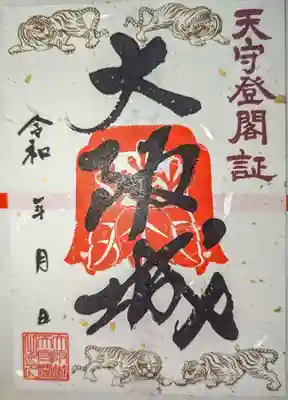 天守登閣証
大坂城
令和 年 月 日